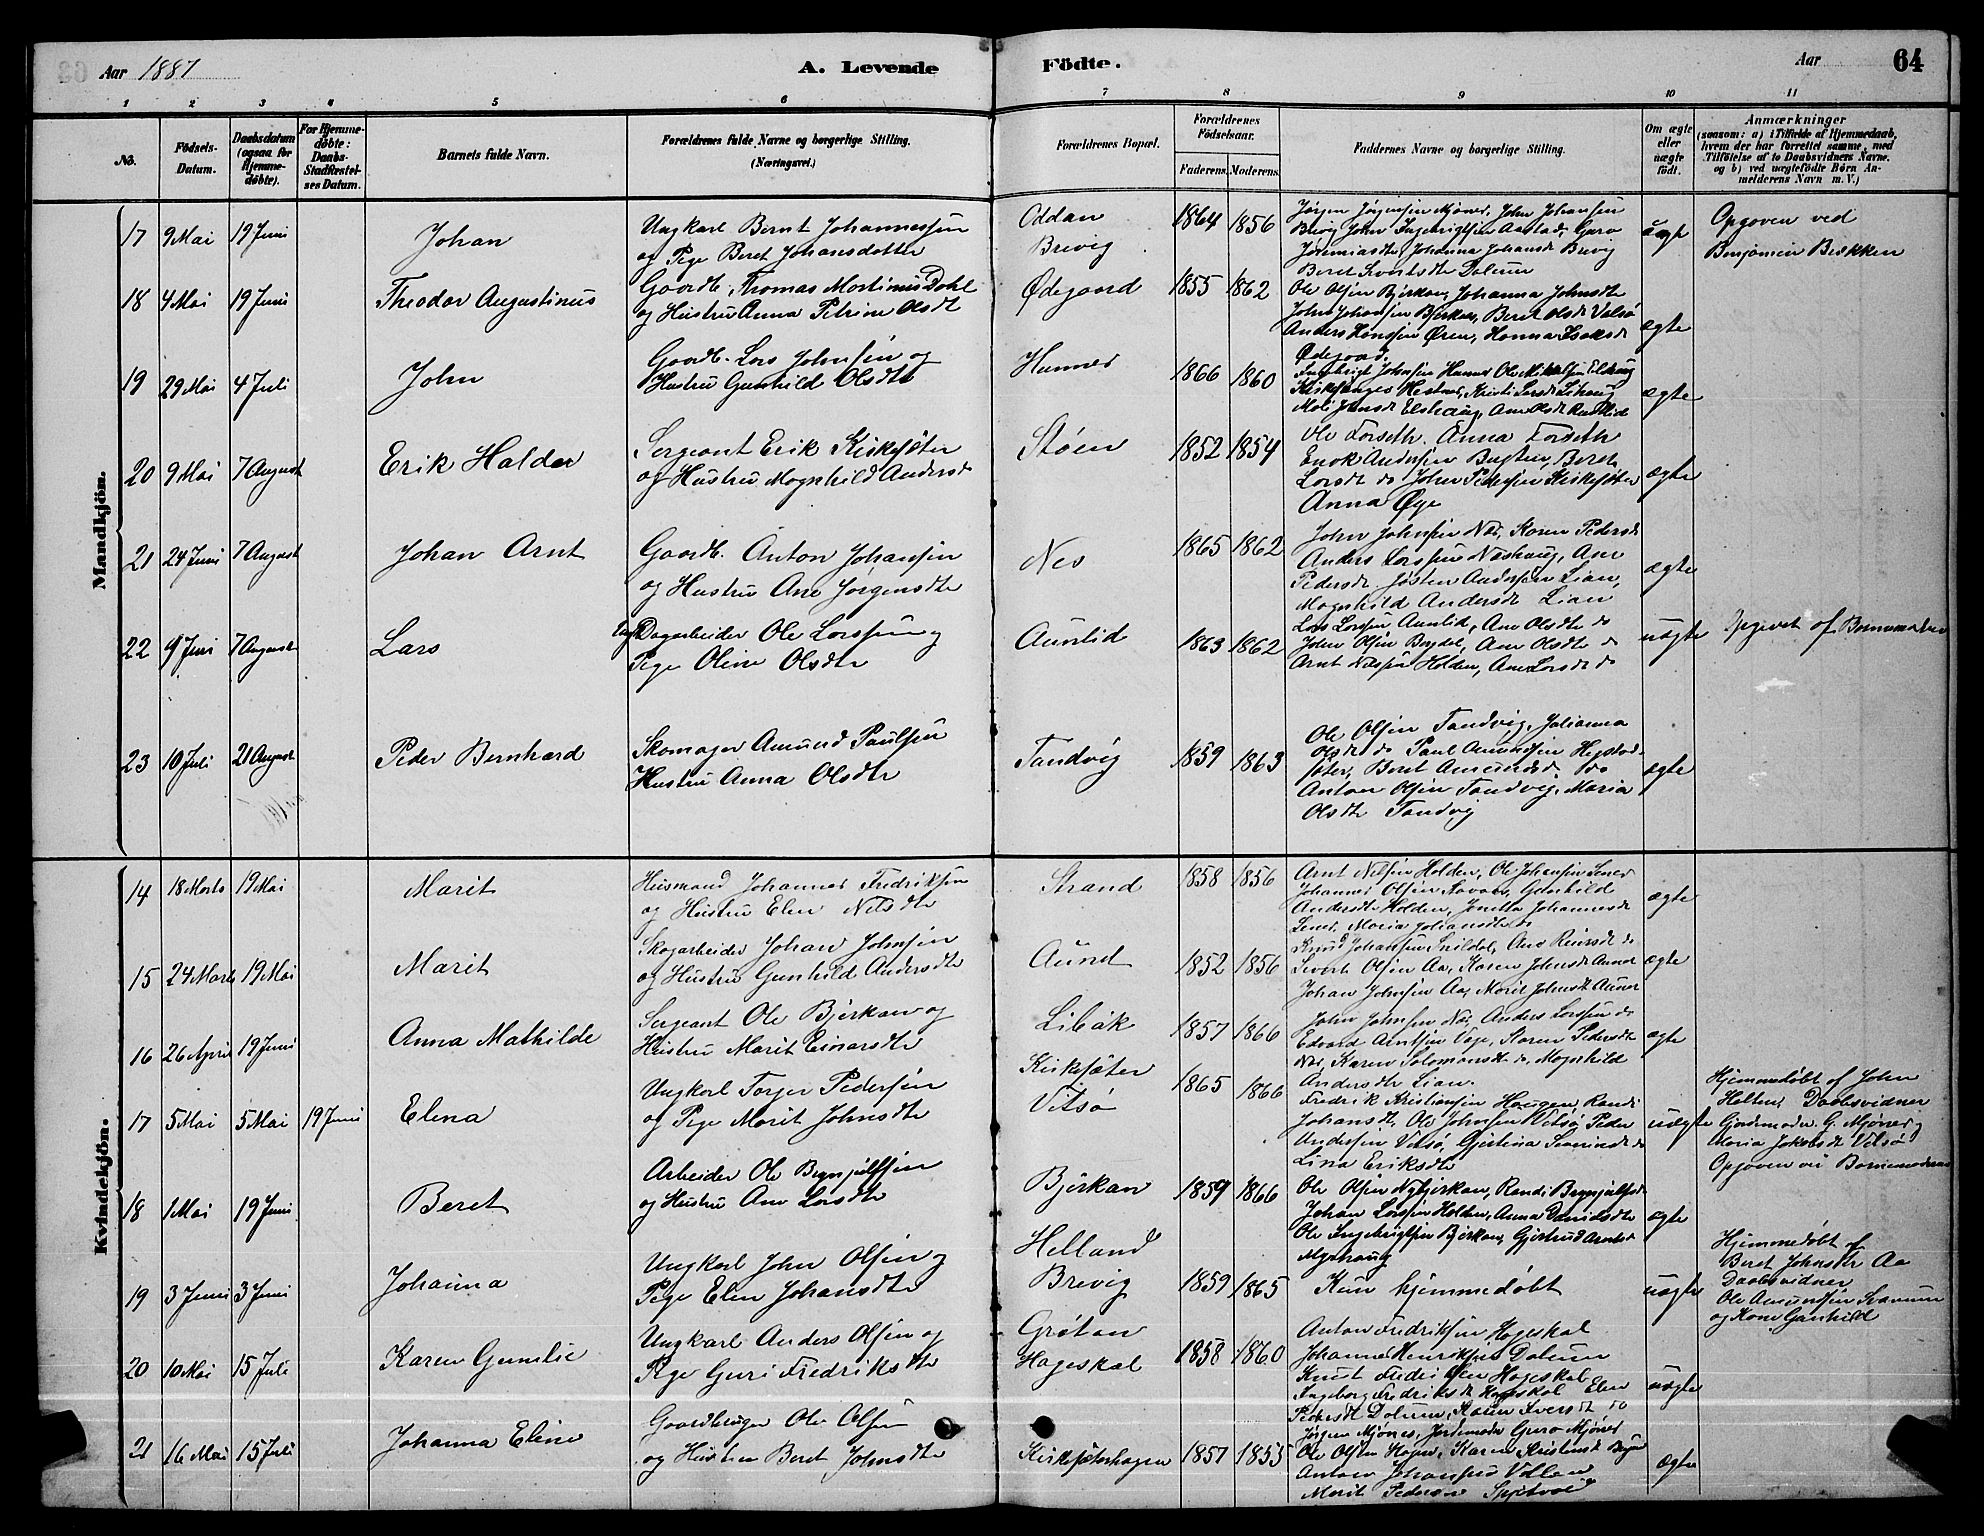 Aar 1887
A. Levende
Födte.
Aar
64
1 2 3 4 5 6 7 8 9 10 11
No.
Födsels-
Datum.
Daabsdatum
(ogsaa for
Hjemme-
døbte).
For Hjemme-
døbte:
Daabs-
Stadfæstel-
ses Datum.
Barnets fulde Navn.
Forældrenes fulde Navne og borgerlige Stilling.
(Næringsvei.)
Forældrenes Bopæl.
Forældrenes
Födselsaar.
Faderens. Moderens.
Faddernes Navne og borgerlig Stilling.
Om ægte
eller
uægte
födt.
Anmærkninger
(saasom: a) i Tilfælde af Hjemmedaab,
hvem der har forrettet samme, med
Tilföielse af to Daabsvidners Navne.
og b) ved uægtefödte Börn An-
melderens Navn m. V.)
Mandkjön.
17 9 Mai 19 Juni Johan
Ungkarl Bernt Johannessen
og Pige Beret Johansdatter
Oddan
Brevig
1864 1856
Jørgen Jørgensen Mjønes, John Johansen
Brevig John Ingebrigtsen Aastad, Guro
Jeremiasdtr, Johanna Johansdt Brevig
Beret Sivertsdtr Dolum
uægte
Opgaven ved
Benjamin Bækken
18 4 Mai 19 Juni Theodor Augustinus
Gaardb. Thomas Martinus Dahl
og Hustru Anna Petrine Olsdt
Ødegaard
1855 1862
Ole Olsen Bjerkan, Johanna Johnsdtr
John Johansen Bjerkan, Beret Olsdt Vitsø
Anders Hanssen Øren, Hanna Isaksdt
Ødegaard.
ægte
19 29 Mai 4 Juli John
Gaardb. Lars Johnsen og
Hustru Gunhild Olsdtr
Hammer
1866 1860
Moli Johnsdt Elshaug, Ane Olsdt
ægte
20 9 Mai 7 August Erik Halder
Sergeant Erik Kirksæter
og Hustru Magnhild Andersdt
Støen
1852 1854
Ole Forseth. Anna Forseth
Enok Andersen Bugten, Beret
Larsdt do John Pedersen Kirksæter
Anna Øye
ægte
21 24 Juni 7 August Johan Arnt
Gaardb. Anton Johansen
og Hustru Ane Jørgensdtr
Nes
1865 1862
John Johnsen Næs, Karen Pedersdt
Anders Larssen Næshaug, Ane
Pedersdt. Jøsten Andersen Lian,
Magnhild Andersdt Lian
ægte
22 9 Juni 7 August Lars
Ungk Dagarbeider Ole Larssen og
Pige Oline Olsdtr
Aunlid
1863 1862
Lars Larssen Aunlid, Ane Olsdtr do
John Olsen Bogdel, Ane Olsdtr do
Arnt Nilssen Holden, Ane Larsdt do
uægte
Opgivet af Barnemoderen
23 10 Juli 21 August Peder Bernhard
Skomager Amund Paulsen
Hustru Anna Olsdtr
Tandvig
1859 1863
Ole Olsen Tandvig, Johanna
Olsdt do Paul Amundsen Hegstad-
sæter, Beret Amundsd. do
Anton Olsen Tandvig, Maria
Olsdtr Tandvig
ægte
Kvindekjön.
14 18 Marts 19 Mai Marit
Husmand Johannes Fredriksen
og Hustru Elen Nilsdtr
Strand
1858 1856
Arnt Nilsen Holden, Ole Johansen Lenes
Johannes Olsen Stavaas, Gunhild
Andersdtr Holden, Jonetta Johannesdt
Lenes, Maria Johansdtr do
ægte
15 24 Marts 19 Mai Marit
Skogarbeider Johan Johnsen
og Hustru Gunhild Andersdtr
Aund
1852 1856
Knud Johansen Snildal, Ane
Sivert Olsen Aa, Karen Johnsdt Aunet
Johan Johnsen Aa, Marit Johnsdt Aunet
ægte
16 26 April 19 Juni Anna Mathilde
Sergeant Ole Bjerkan og
Hustru Marit Einarsdtr
Libæk
1857 1866
John Johnsen Næs, Anders Larssen do
Edvard Arntsen Vage, Karen Pedersdtr
Næs, Karen Solomonsdt do, Magnhild
Andersdtr Lian.
ægte
17 5 Mai 5 Mai 19 Juni Elena
Ungkarl Torger Pedersen
og Pige Marit Johnsdtr
Kirksæter
Vitsø
1865 1866
Fredrik Kristiansen Haugen, Randi
Johansdt, Ole Johnsen Vitsø, Peder
Andersen Vitsø, Gjertina Severinsdt do
Lina Eriksdtr
uægte
Hjemmedøbt af John
Holten, Daabsvidner
Gjordemoder. G. Mjønes og
Maria Jakobsdt Vitsø
Opgaven ved Barnemoderen
18 1 Mai 19 Juni Beret
Arbeider Ole Brynjulfsen
og Hustru Ane Larsdtr
Bjerkan
1859 1866
Ole Olsen Nybjerkan, Randi Brynjulfsd
Johan Larssen Holden, Anna Davidsdtr
Ole Ingebrigtsen Bjerkan, Gjertrud Arntsd
Myrhaug
ægte
19 3 Juni 3 Juni Johanna
Ungkarl John Olsen og
Pige Elen Johansdtr
Helland
Brevig
1859 1865
Kun hjemmedøbt
uægte
Hjemmedøbt af
Beret Johnsdtr Aa
Daabsvidner
Ole Amundsen Stavnum
og Kone Gunhild
20 10 Mai 15 Juli Karen Gunelie
Ungkarl Anders Olsen og
Pige Guri Fredriksdtr
Grøtan
Hageskal
1858 1860
Anton Fredriksen Hageskal
Johannes Henriksen Dolum
Knut Fredriksen Hageskal
Ingeborg Fredriksdt Hageskal Elen
Pedersdt Dolum, Karen Iversdt do
uægte
21 16 Mai 15 Juli Johanna Eline
Gaardbruger Ole Olsen
og Hustru Beret Johnsdtr
Kirksæterhagen
1857 1855
Jørgen Mjønes, Jordemoder Guro Mjønes
Ole Olsen Hagen, Karen Kristensdt
Anton Johansen Vollan
Marit Pedersen
ægte